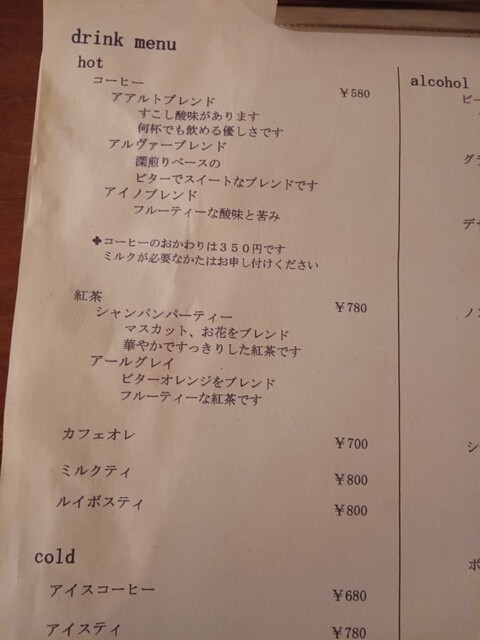 drink menu
hot
コーヒー ￥580
アアルトブレンド
すこし酸味があります
何杯でも飲める優しさです
アルヴァーブレンド
深煎りベースの
ビターでスイートなブレンドです
アイノブレンド
フルーティーな酸味と苦み
✤コーヒーのおかわりは３５０円です
ミルクが必要なかたはお申し付けください
紅茶 ￥780
シャンパンパーティー
マスカット、お花をブレンド
華やかですっきりした紅茶です
アールグレイ
ビターオレンジをブレンド
フルーティーな紅茶です
カフェオレ ￥700
ミルクティ ￥800
ルイボスティ ￥800
cold
アイスコーヒー ￥680
アイスティ ￥780
alcohol
ビー
グラ
デ
ノン
シ